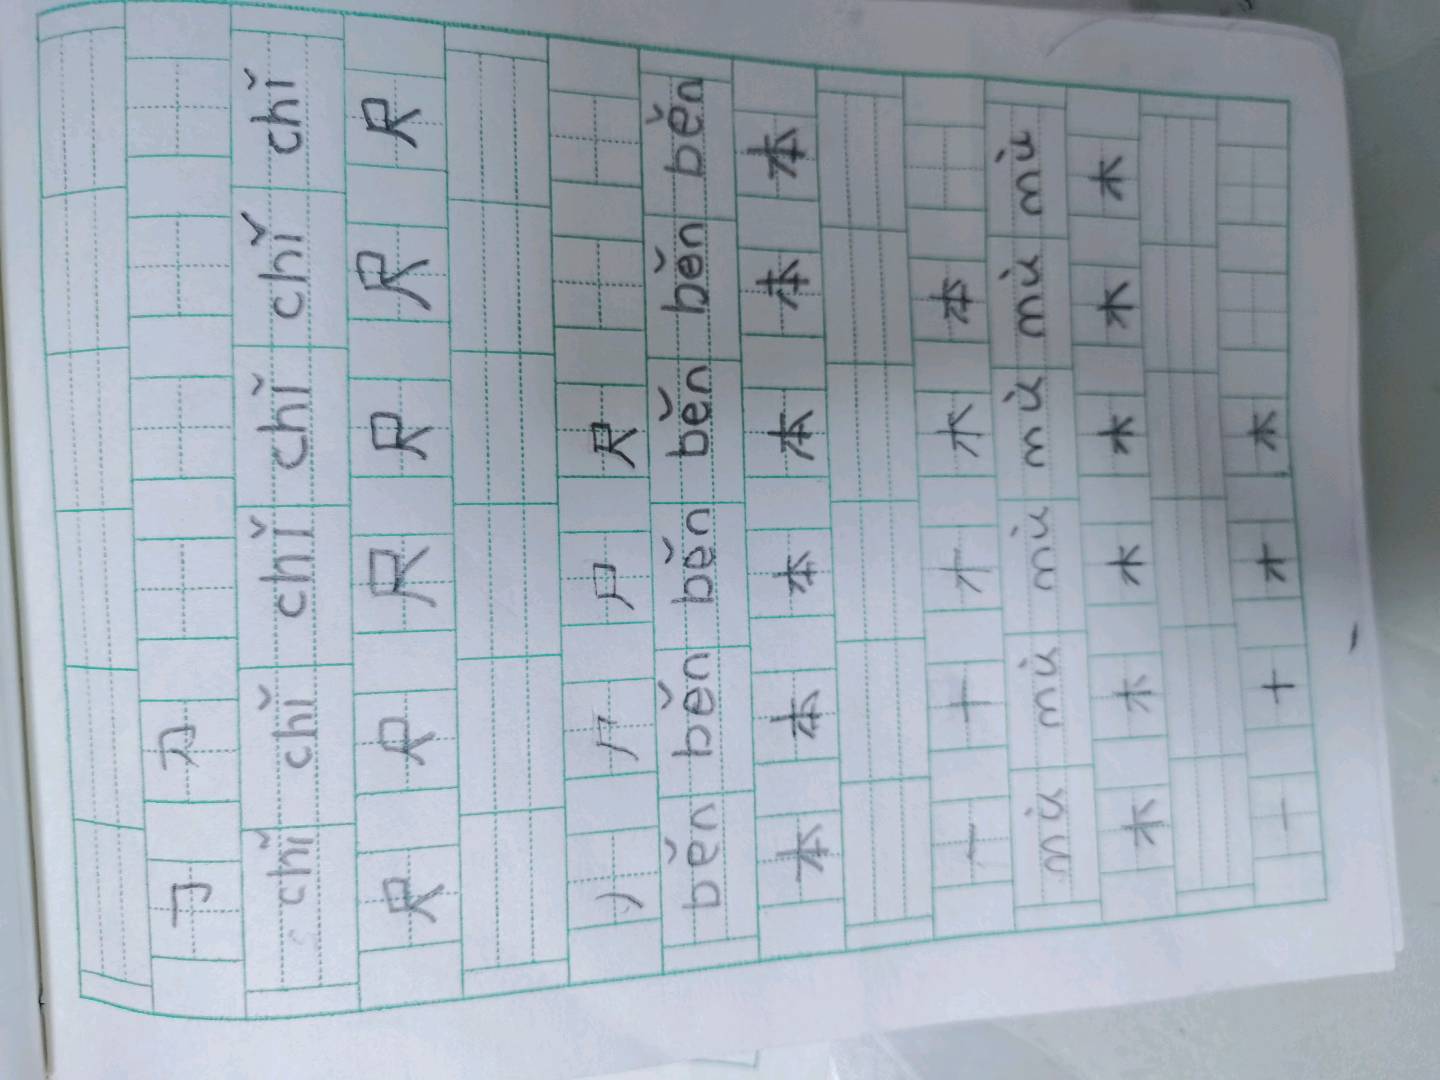 ㇆ 刀
chǐ chǐ chǐ chǐ chǐ chǐ
尺 尺 尺 尺 尺 尺
尸 尺
běn běn běn běn běn běn
本 本 本 本 本 本
一 十 才 木 本
mù mù mù mù mù mù
木 木 木 木 木 木
一 十 才 木